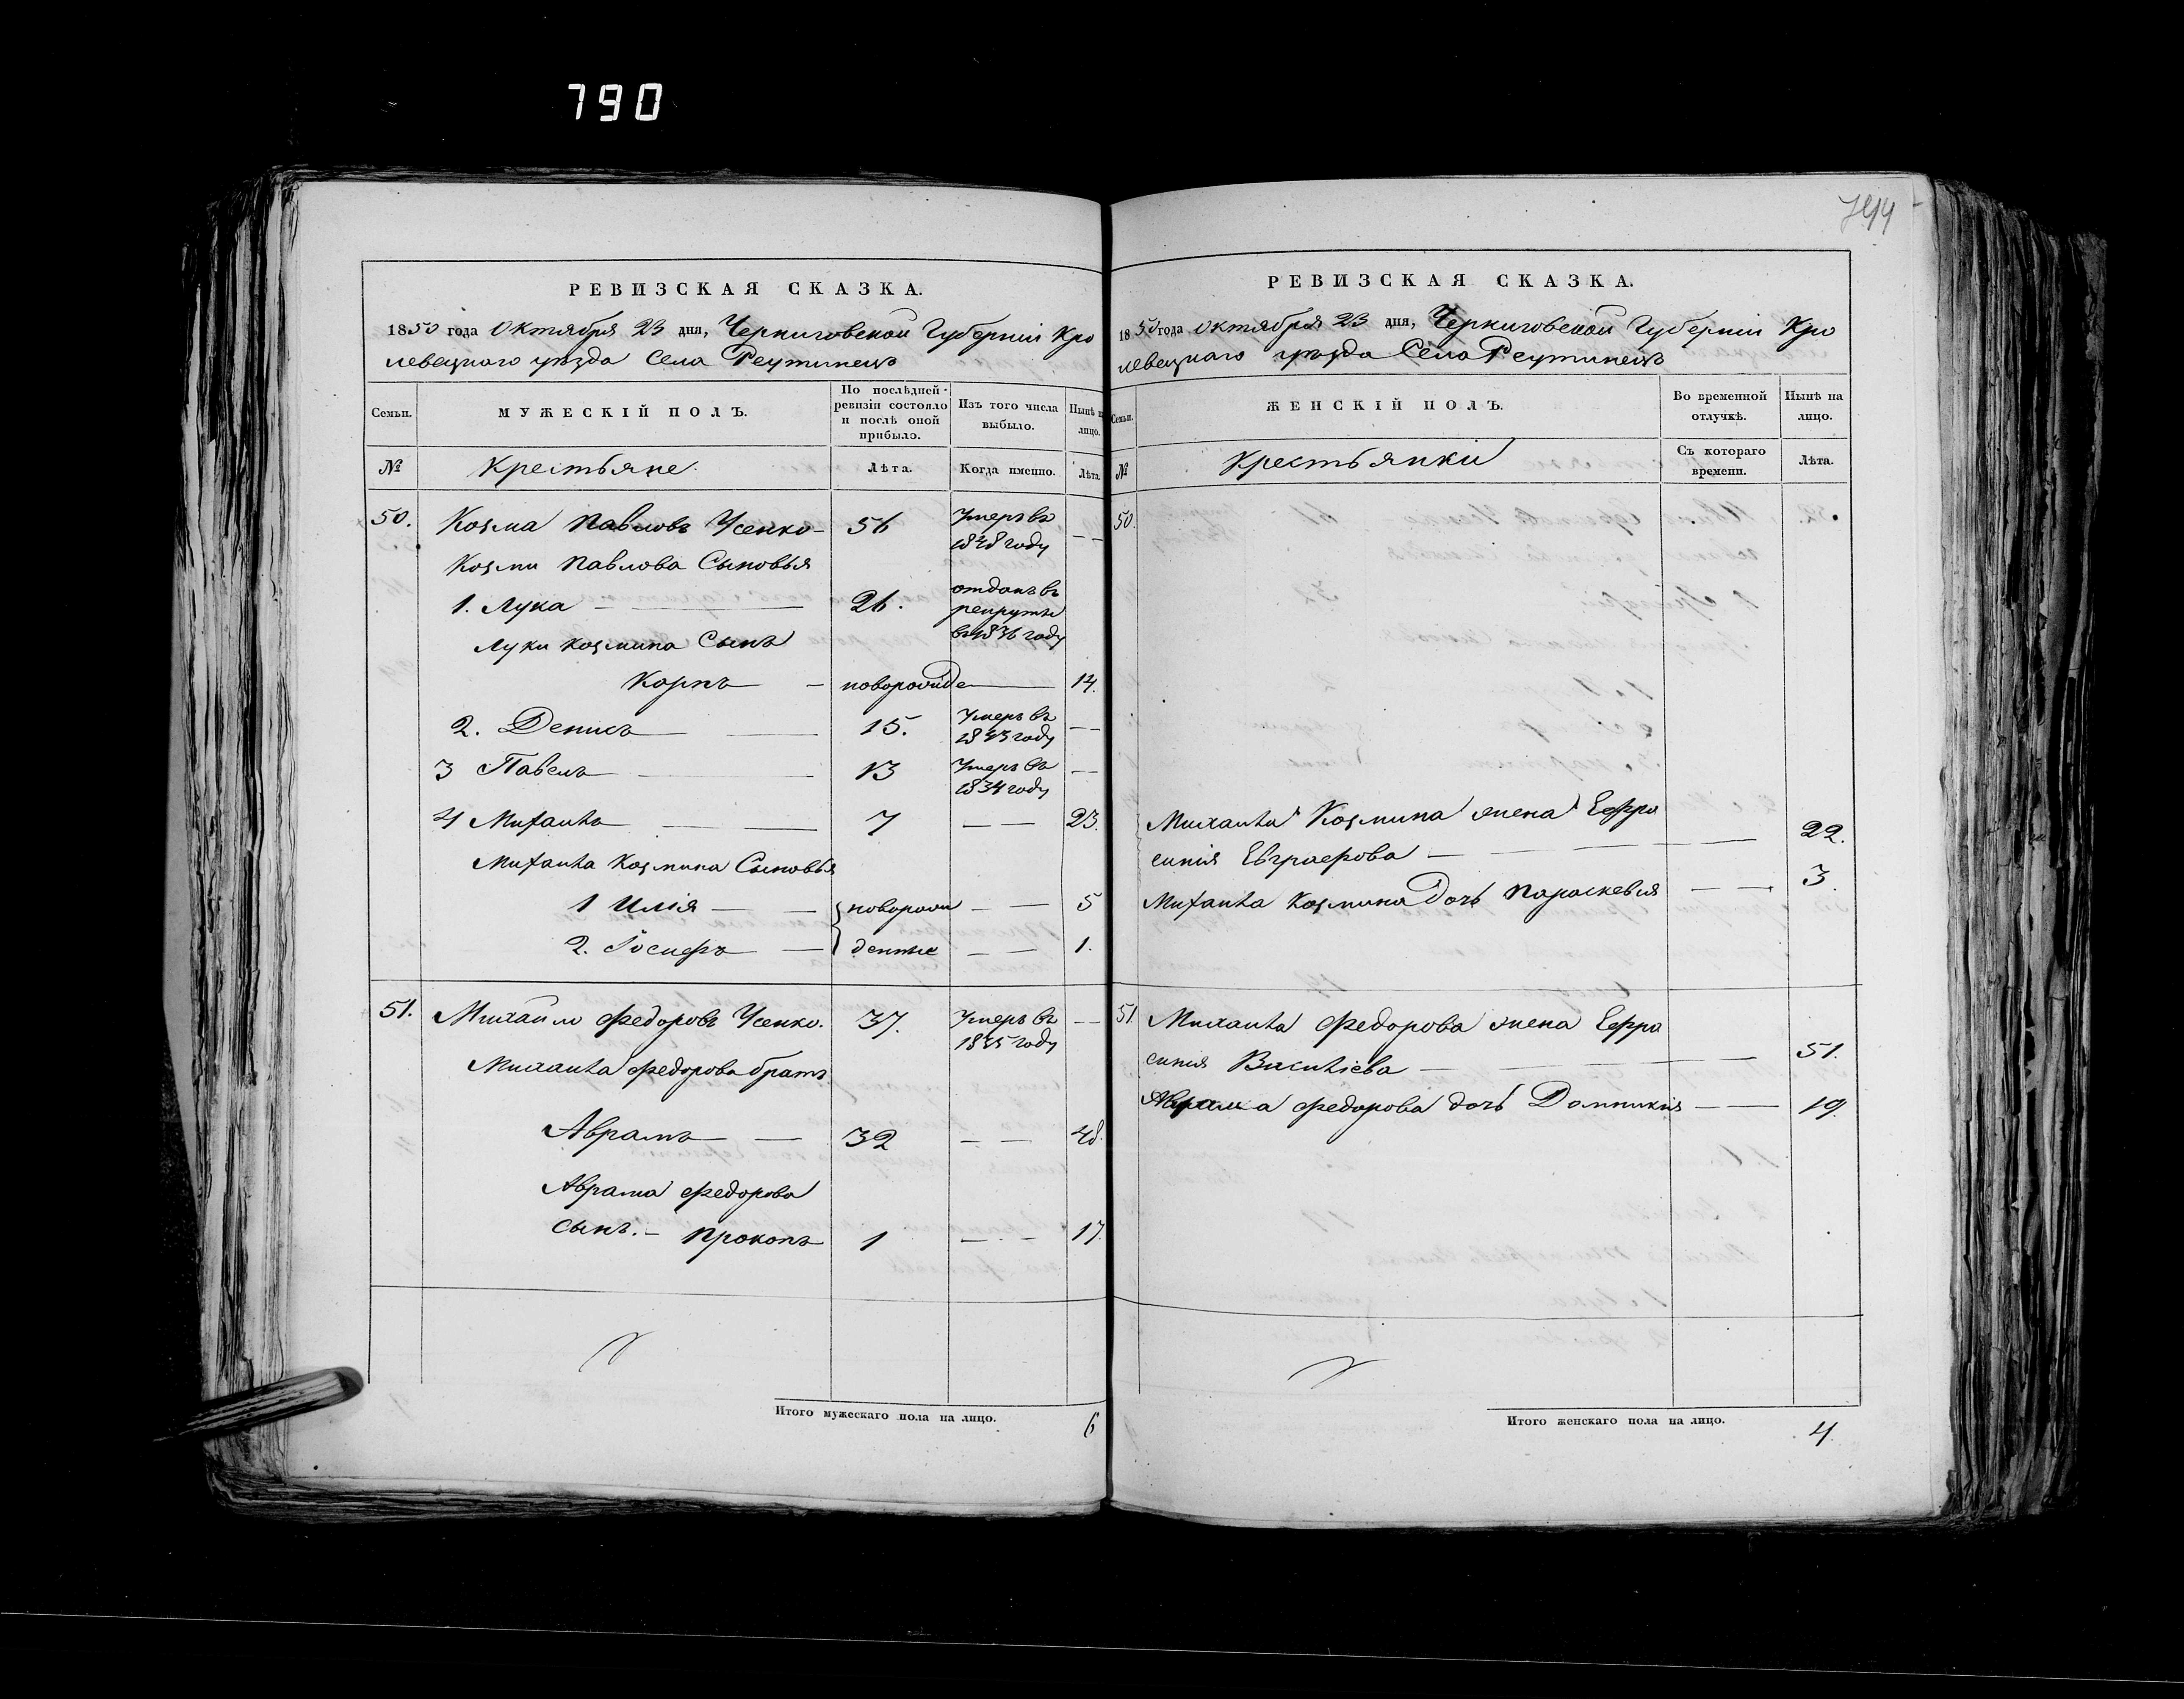 790
744
РЕВИЗСКАЯ СКАЗКА.
1850 года Октября 23 дня, Черниговской Губернии Кро
левецкаго уѣзда Села Реутинецъ
Семьи.
МУЖЕСКІЙ ПОЛЪ.
По послѣдней
ревизіи состояло
и послѣ оной
прибыло.
Изъ того числа
выбыло.
Нынѣ н
лицо.
№
Крестьяне.
Лѣта.
Когда именно.
Лѣта.
50. Козма Павловъ Усенко - 56 Умеръ въ
1848 году - -
Козми Павлова Сыновья
1. Лука - 26. отданъ въ
рекруты
въ 1836 году
Луки Козмина Сынъ
Корнъ - новорожде 14.
2. Денисъ - 15. Умеръ въ
1843 году -
3 Павелъ - 13 Умеръ въ
1834 году -
4 Михаила - 7 - - 23.
Михаила Козмина Сыновья
1 Илія - - новорож - - 5
2. Іосифъ - денные - - 1.
51. Михайло Федоровъ Усенко. 37. Умеръ въ
1835 году -
Михаила Федорова братъ
Аврамъ - - 32 - - 48.
Аврама Федорова
Сынъ. - Прокопъ 1 - - 17.
Итого мужескаго пола на лицо. 6
РЕВИЗСКАЯ СКАЗКА.
1850 года Октября 23 дня, Черниговской Губерніи Кро
левецкаго уѣзда Села Реутинецъ
Семьи.
ЖЕНСКІЙ ПОЛЪ.
Во временной
отлучкѣ.
Нынѣ на
лицо.
№
Крестьянки
Съ котораго
времени.
Лѣта.
50.
Михаила Козмина жена Ефро
синія Евграфова - 22.
Михаила Козмина дочь Параскевия - - 3.
51. Михаила Федорова жена Ефро
синія Василіева - 51.
Аврама Федорова дочь Домникия - 19.
Итого женскаго пола на лицо. 4